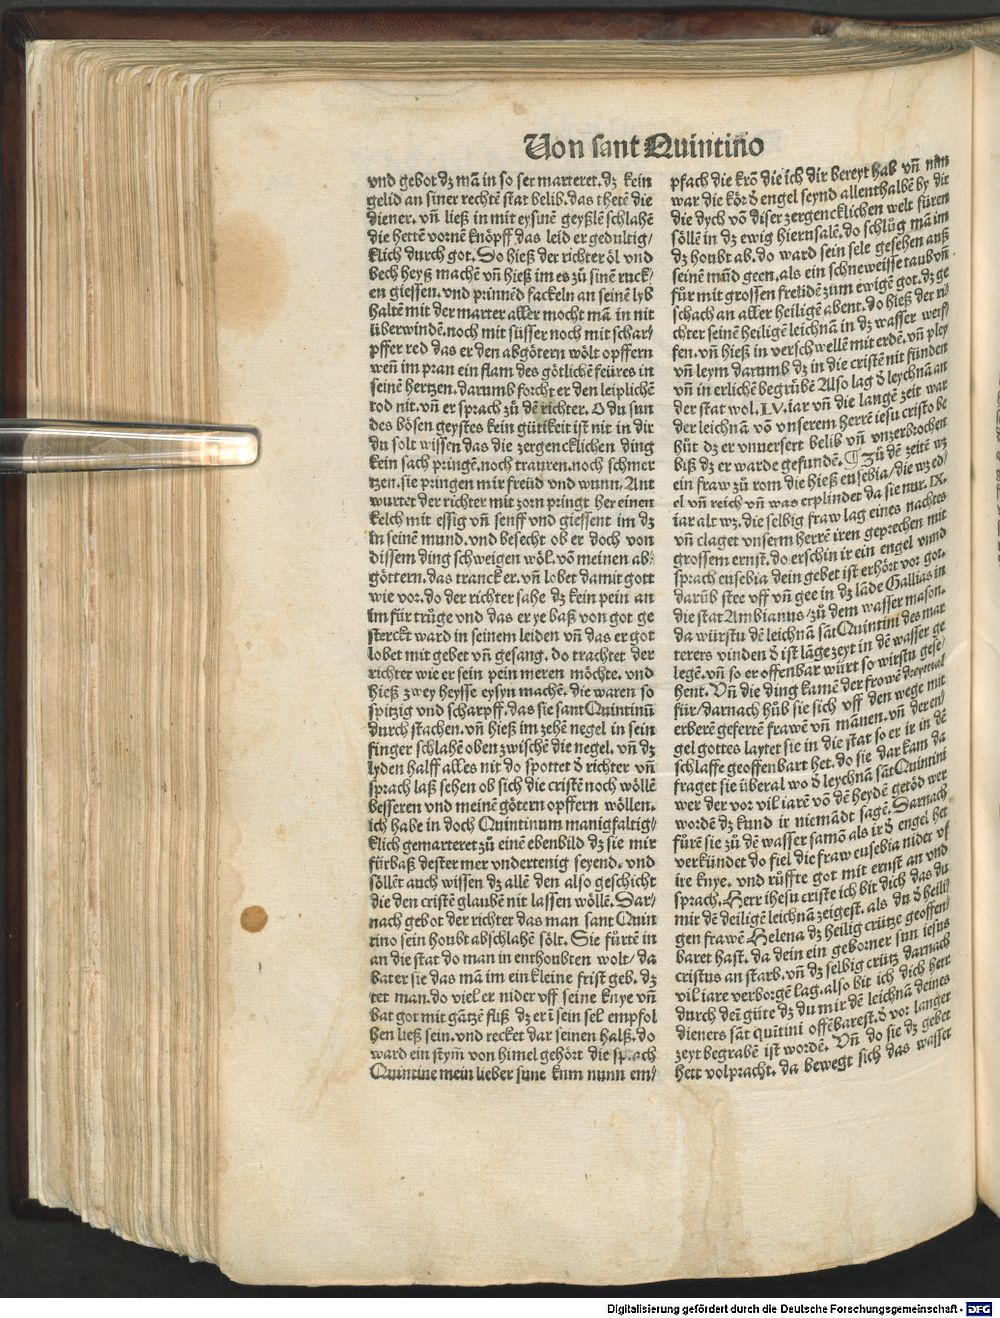 Von sant Quintino
vnd gebot dz mā in so ser marteret. dz kein
gelid an siner rechtē stat belib. das thetē die
diener. vñ ließ in mit eysinē geyßlē schlahē
die hettē vornē knöpff das leid er gedultig/
klich durch got. Do hieß der richter öl vnd
bech heyß machē vñ hieß im es zů sinē ruck/
en giessen. vnd prinnēd fackeln an seinē lyb
haltē mit der marter aller mocht mā in nit
überwindē. noch mit süsser noch mit schar/
pffer red das er den abgötern wölt opffern
weñ im pran ein flam des götlichē feüres in
seinē hertzen. darumb forcht er den leiplichē
tod nit. vñ er sprach zů dē richter. O du sun
des bösen geystes kein gütikeit ist nit in dir
du solt wissen das die zergencklichen ding
kein sach pringē. noch trauren. noch schmer
tzen. sie pringen mir freüd vnd wunn. Ant
wurtet der richter mit zorn pringt her einen
kelch mit essig vñ senff vnd giessent im dz
in seinē mund. vnd besecht ob er doch von
dissem ding schweigen wöl. vō meinen ab/
göttern. das tranck er. vñ lobet damit gott
wie vor. do der richter sahe dz kein pein an
im für trüge vnd das er ye baß von got ge
sterckt ward in seinem leiden vñ das er got
lobet mit gebet vñ gesang. do trachtet der
richter wie er sein pein meren möchte. vnd
hieß zwey heysse eysyn machē. die waren so
spitzig vnd scharpff. das sie sant Quintinū
durch stachen. vñ hieß im zehē negel in sein
finger schlahē oben zwischē die negel. vñ dz
lyden halff alles nit do spottet d̄ richter vñ
sprach laß sehen ob sich die cristē noch wöllē
besseren vnd meinē götern opffern wöllen.
ich habe in doch Quintinum manigfaltig/
klich gemarteret zů einē ebenbild dz sie mir
fürbaß dester mer vndertenig seyend. vnd
söllēt auch wissen dz allē den also geschicht
die den cristē glaubē nit lassen wöllē. Dar/
nach gebot der richter das man sant Quin
tino sein houbt abschlahē sölt. Sie fürtē in
an die stat do man in enthoubten wolt/ da
bater sie das mā im ein kleine frist geb. dz
tet man. do viel er nider vff seine knye vñ
bat got mit gātzē fliß dz er ī sein sel empfol
hen ließ sein. vnd recket dar seinen halß. do
ward ein stym̄ von himel gehört die sprach
Quintine mein lieber sune kum nunn em/
pfach die krō die ich dir bereyt hab vñ nim
war die kör d̄ engel seynd allenthalbē by dir
die dych vō diser zergencklichen welt füren
söllē in dz ewig hierusalē. do schlůg mā im
dz houbt ab. do ward sein sele gesehen auß
seinē mūd geen. als ein schneweisse taub vñ
für mit grossen freüdē zum ewigē got. dz ge
schach an aller heiligē abent. do hieß der ri/
chter seinē heiligē leichnā in dz wasser werf/
fen. vñ hieß in verschwellē mit erdē. vñ pley
vñ leym darumb dz in die cristē nit fünden
vñ in erlichē begrůbē Also lag d̄ leychnā an
der stat wol. LV. iar vñ die langē zeit war
der leichnā vō vnserem herrē iesu cristo be
hüt dz er vnuersert belib vñ vnzerbrochen
biß dz er warde gefundē. ¶ Zů dē zeitē wz
ein fraw zů rom die hieß eusebia/ die wz ed/
el vñ reich vñ was erplindet da sie nur. IX.
iar alt wz. die selbig fraw lag eines nachtes
vñ claget vnserm herrē iren geprechen mit
grossem ernst. do erschin ir ein engel vnnd
sprach eusebia dein gebet ist erhört vor got.
darūb stee vff vñ gee in dz lāde Gallias in
die stat Ambianus/ zů dem wasser mason.
da würstu dē leichnā sāt Quintini des mar
terers vinden d̄ ist lāge zeyt in dē wasser ge
legē. vñ so er offenbar würt so wirstu gese/
hent. Vñ die ding kamē der frowē dreymal
für/ darnach hůb sie sich vff den wege mit
erberē geferrē frawē vñ mānen. vñ der en/
gel gottes laytet sie in die stat so er ir in dē
schlaffe geoffenbart het. do sie dar kam da
fraget sie überal wo d̄ leychnā sāt Quintini
wer der vor vil iarē vō dē heydē getöd wer
wordē dz kund ir niemādt sagē. Darnach
fůrē sie zů dē wasser samō als ir d̄ engel het
verkündet do fiel die fraw eusebia nider vf
ire knye. vnd rüffte got mit ernst an vnd
sprach. Herr ihesu criste ich bit dich das du
mir dē heiligē leichnā zeigest. als du d̄ heili/
gen frawē Helena dz heilig crütze geoffen/
baret hast. da dein ein geborner sun iesus
cristus an starb. vñ dz selbig crütz darnach
vil iare verborgē lag. also bit ich dich herr
durch deī güte dz du mir dē leichnā deines
dieners sāt quītini offēbarest. d̄ vor langer
zeyt begrabē ist wordē. Vñ do sie dz gebet
hett volpracht. da bewegt sich das wasser
Digitalisierung gefördert durch die Deutsche Forschungsgemeinschaft - DFG